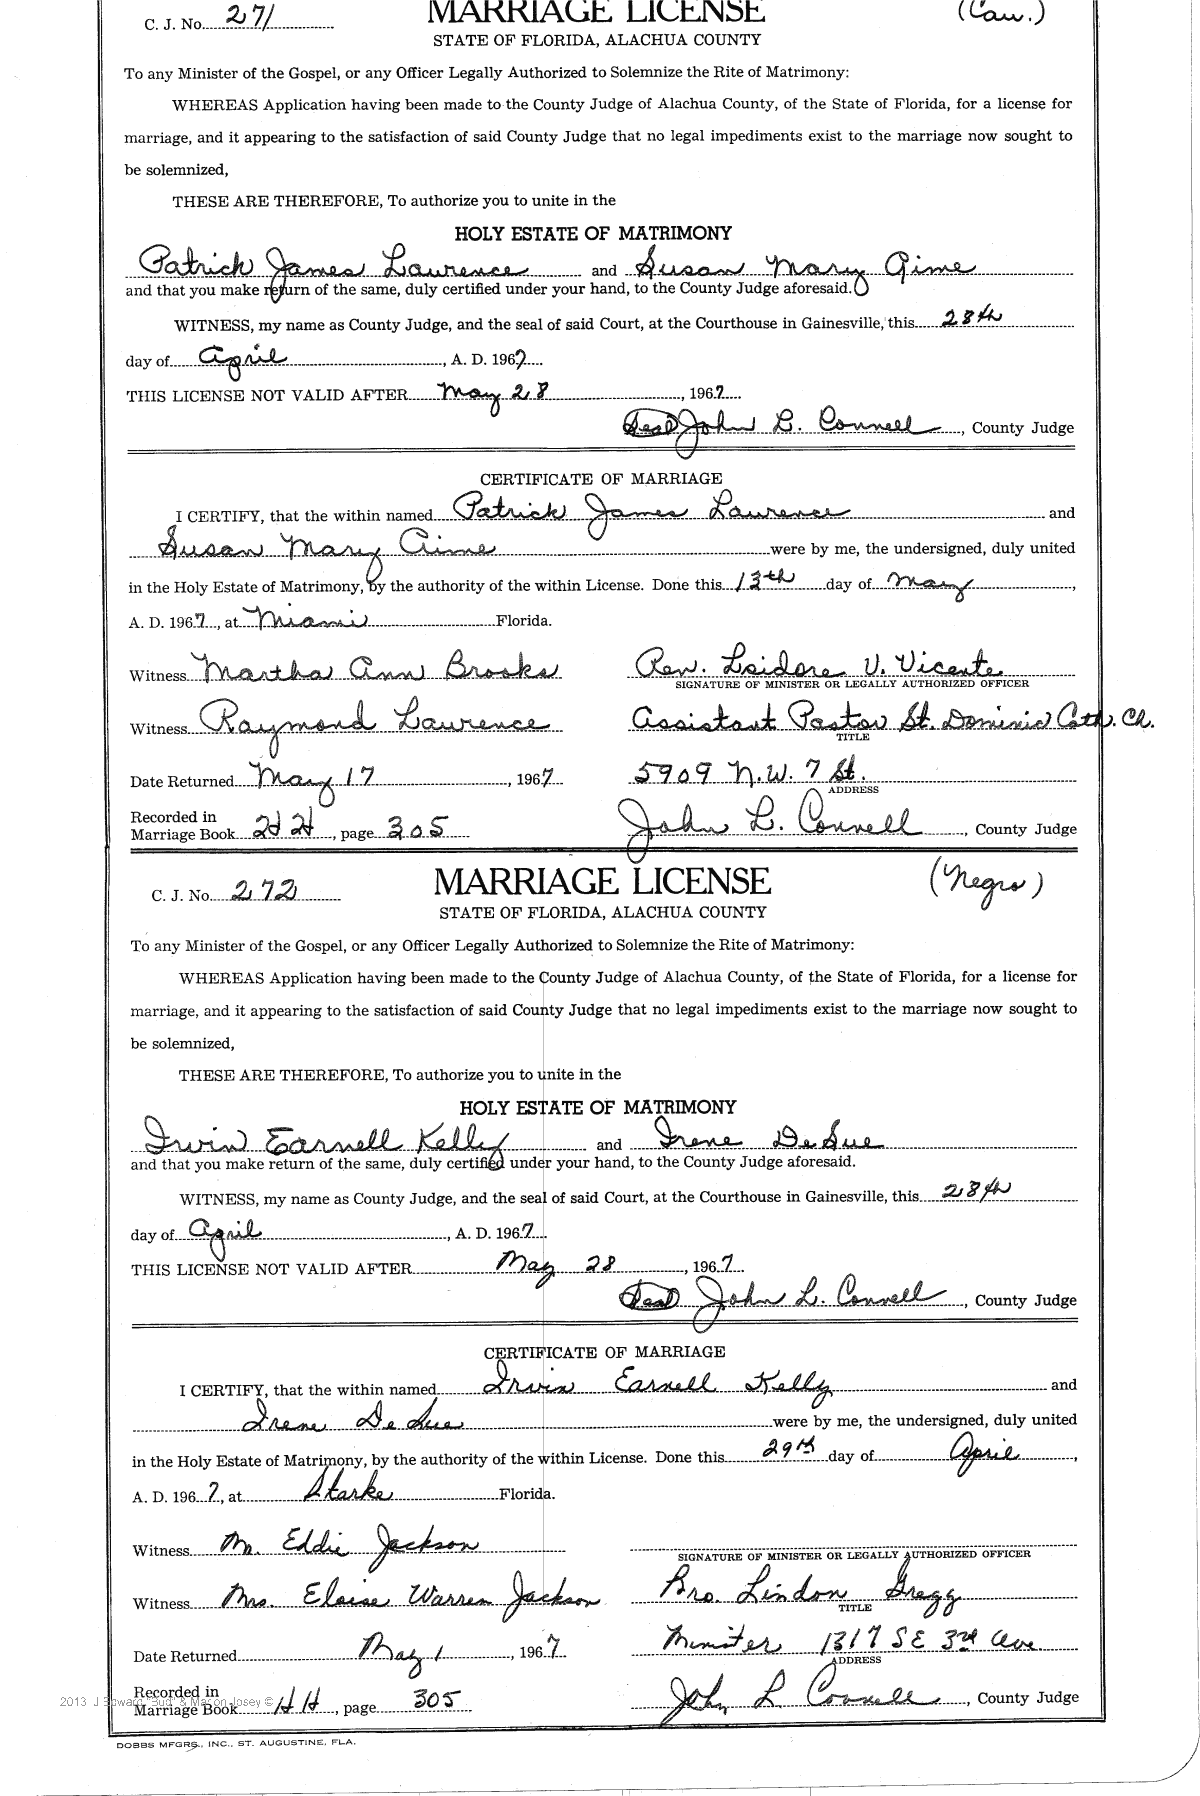 C. J. No. 271 MARRIAGE LICENSE (Cau.)
STATE OF FLORIDA, ALACHUA COUNTY
To any Minister of the Gospel, or any Officer Legally Authorized to Solemnize the Rite of Matrimony:
WHEREAS Application having been made to the County Judge of Alachua County, of the State of Florida, for a license for
marriage, and it appearing to the satisfaction of said County Judge that no legal impediments exist to the marriage now sought to
be solemnized,
THESE ARE THEREFORE, To authorize you to unite in the
HOLY ESTATE OF MATRIMONY
Patrick James Lawrence and Susan Mary Aime
and that you make return of the same, duly certified under your hand, to the County Judge aforesaid.
WITNESS, my name as County Judge, and the seal of said Court, at the Courthouse in Gainesville, this 28th
day of April, A. D. 1967
THIS LICENSE NOT VALID AFTER May 28, 1967
(Seal) John L. Connell, County Judge
CERTIFICATE OF MARRIAGE
I CERTIFY, that the within named Patrick James Lawrence and
Susan Mary Aime were by me, the undersigned, duly united
in the Holy Estate of Matrimony, by the authority of the within License. Done this 13th day of May,
A. D. 1967, at Miami Florida.
Witness Martha Ann Brooks Rev. Isidore V. Vicente
SIGNATURE OF MINISTER OR LEGALLY AUTHORIZED OFFICER
Witness Raymond Lawrence Assistant Pastor St. Dominic Cath. Ch.
TITLE
Date Returned May 17, 1967 5909 N.W. 7 St.
ADDRESS
Recorded in
Marriage Book HH, page 305 John L. Connell, County Judge
C. J. No. 272 MARRIAGE LICENSE (Negro)
STATE OF FLORIDA, ALACHUA COUNTY
To any Minister of the Gospel, or any Officer Legally Authorized to Solemnize the Rite of Matrimony:
WHEREAS Application having been made to the County Judge of Alachua County, of the State of Florida, for a license for
marriage, and it appearing to the satisfaction of said County Judge that no legal impediments exist to the marriage now sought to
be solemnized,
THESE ARE THEREFORE, To authorize you to unite in the
HOLY ESTATE OF MATRIMONY
Irvin Earnell Kelly and Irene DeSue
and that you make return of the same, duly certified under your hand, to the County Judge aforesaid.
WITNESS, my name as County Judge, and the seal of said Court, at the Courthouse in Gainesville, this 28th
day of April, A. D. 1967
THIS LICENSE NOT VALID AFTER May 28, 1967
(Seal) John L. Connell, County Judge
CERTIFICATE OF MARRIAGE
I CERTIFY, that the within named Irvin Earnell Kelly and
Irene DeSue were by me, the undersigned, duly united
in the Holy Estate of Matrimony, by the authority of the within License. Done this 29th day of April,
A. D. 1967, at Starke Florida.
Witness Mr. Eddie Jackson
SIGNATURE OF MINISTER OR LEGALLY AUTHORIZED OFFICER
Witness Mrs. Eloise Warren Jackson Bro. Lindon Gregg
TITLE
Date Returned May 1, 1967 Minister 1317 SE 3rd Ave
ADDRESS
2013 J Edward "Bud" & Mason Josey ©
Recorded in
Marriage Book HH, page 305 John L Connell, County Judge
DOBBS MFGRS., INC., ST. AUGUSTINE, FLA.